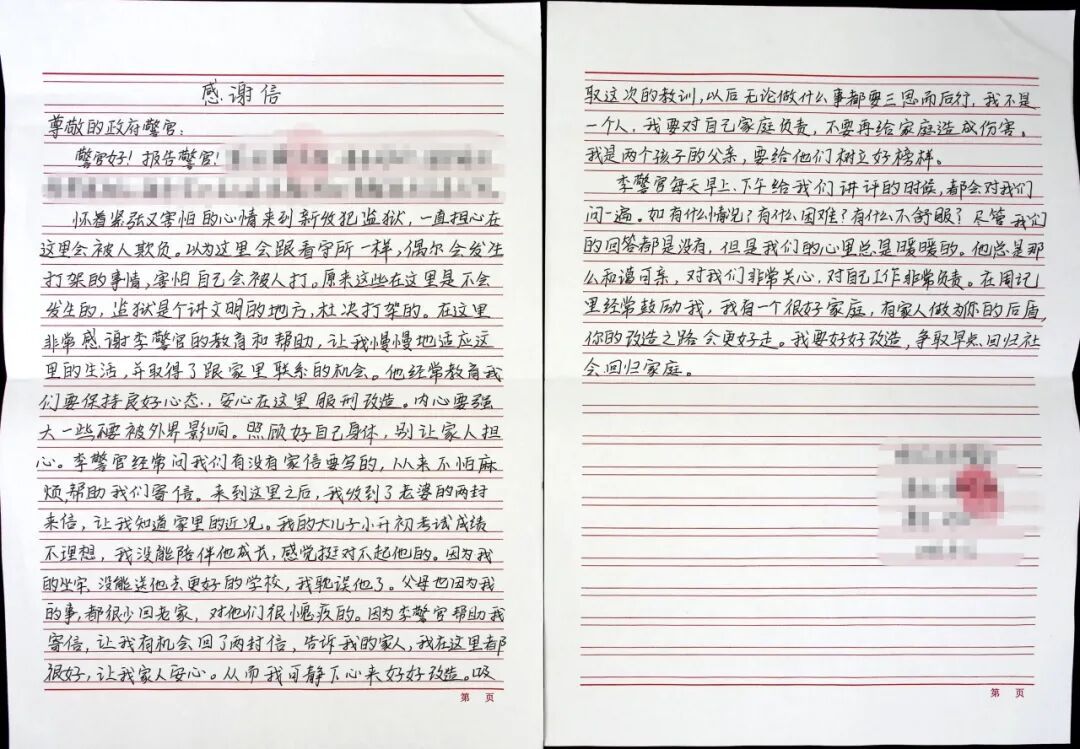 感谢信
尊敬的政府警官：
警官好！报告警官！
怀着紧张又害怕的心情来到新收犯监狱，一直担心在
这里会被人欺负。以为这里会跟看守所一样，偶尔会发生
打架的事情，害怕自己会被人打。原来这些在这里是不会
发生的，监狱是个讲文明的地方，杜决打架的。在这里
非常感谢李警官的教育和帮助，让我慢慢地适应这
里的生活，并取得了跟家里联系的机会。他经常教育我
们要保持良好心态，安心在这里服刑改造。内心要强
大一些不要被外界影响。照顾好自己身体，别让家人担
心。李警官经常问我们有没有家信要写的，从来不怕麻
烦，帮助我们寄信。来到这里之后，我收到了老婆的两封
来信，让我知道家里的近况。我的大儿子小升初考试成绩
不理想，我没能陪伴他成长，感觉挺对不起他的。因为我
的坐牢，没能送他去更好的学校，我耽误他了。父母也因为我
的事，都很少回老家，对他们很愧疚的。因为李警官帮助我
寄信，让我有机会回了两封信，告诉我的家人，我在这里都
很好，让我家人安心。从而我可静下心来好好改造。吸
第 页
取这次的教训，以后无论做什么事都要三思而后行，我不是
一个人，我要对自己家庭负责，不要再给家庭造成伤害。
我是两个孩子的父亲，要给他们树立好榜样。
李警官每天早上、下午给我们讲评的时候，都会对我们
问一遍。如有什么情况？有什么困难？有什么不舒服？尽管我们
的回答都是没有，但是我们的心里总是暖暖的。他总是那
么和谒可亲，对我们非常关心，对自己工作非常负责。在周记
里经常鼓励我，我有一个很好家庭，有家人做为你的后盾，
你的改造之路会更好走。我要好好改造，争取早点回归社
会，回归家庭。
第 页